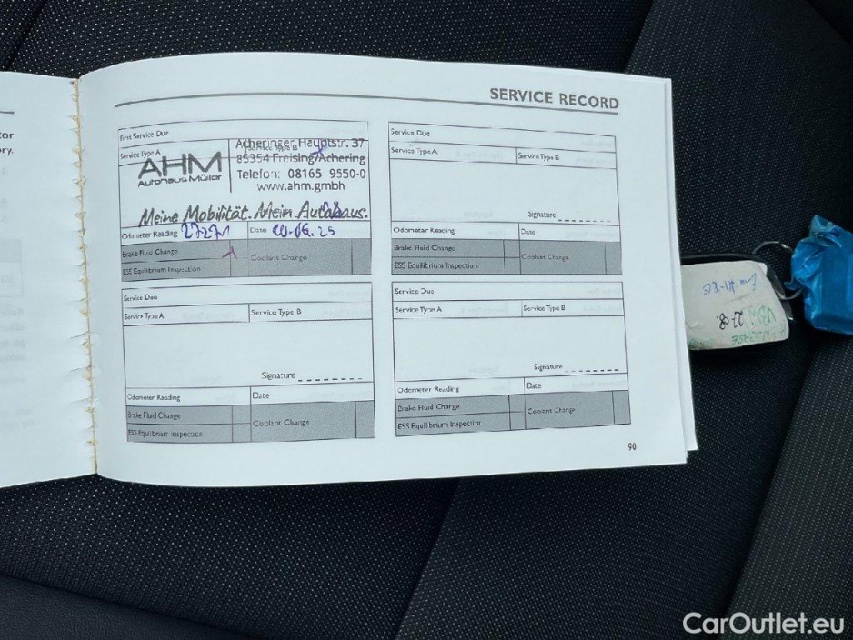 SERVICE RECORD
First Service Due
Service Type A
Service Type B
AHM
Autohaus Müller
Acheringer Hauptstr. 37
85354 Freising/Achering
Telefon: 08165 9550-0
www.ahm.gmbh
Meine Mobilität. Mein Autohaus.
Odometer Reading 27271
Date
Brake Fluid Change
Coolant Change
ESS Equilibrium Inspection
Service Due
Service Type A
Service Type B
Signature
Odometer Reading
Date
Brake Fluid Change
Coolant Change
ESS Equilibrium Inspection
Service Due
Service Type A
Service Type B
Signature
Odometer Reading
Date
Brake Fluid Change
Coolant Change
ESS Equilibrium Inspection
Service Due
Service Type A
Service Type B
Signature
Odometer Reading
Date
Brake Fluid Change
Coolant Change
ESS Equilibrium Inspection
90
CarOutlet.eu